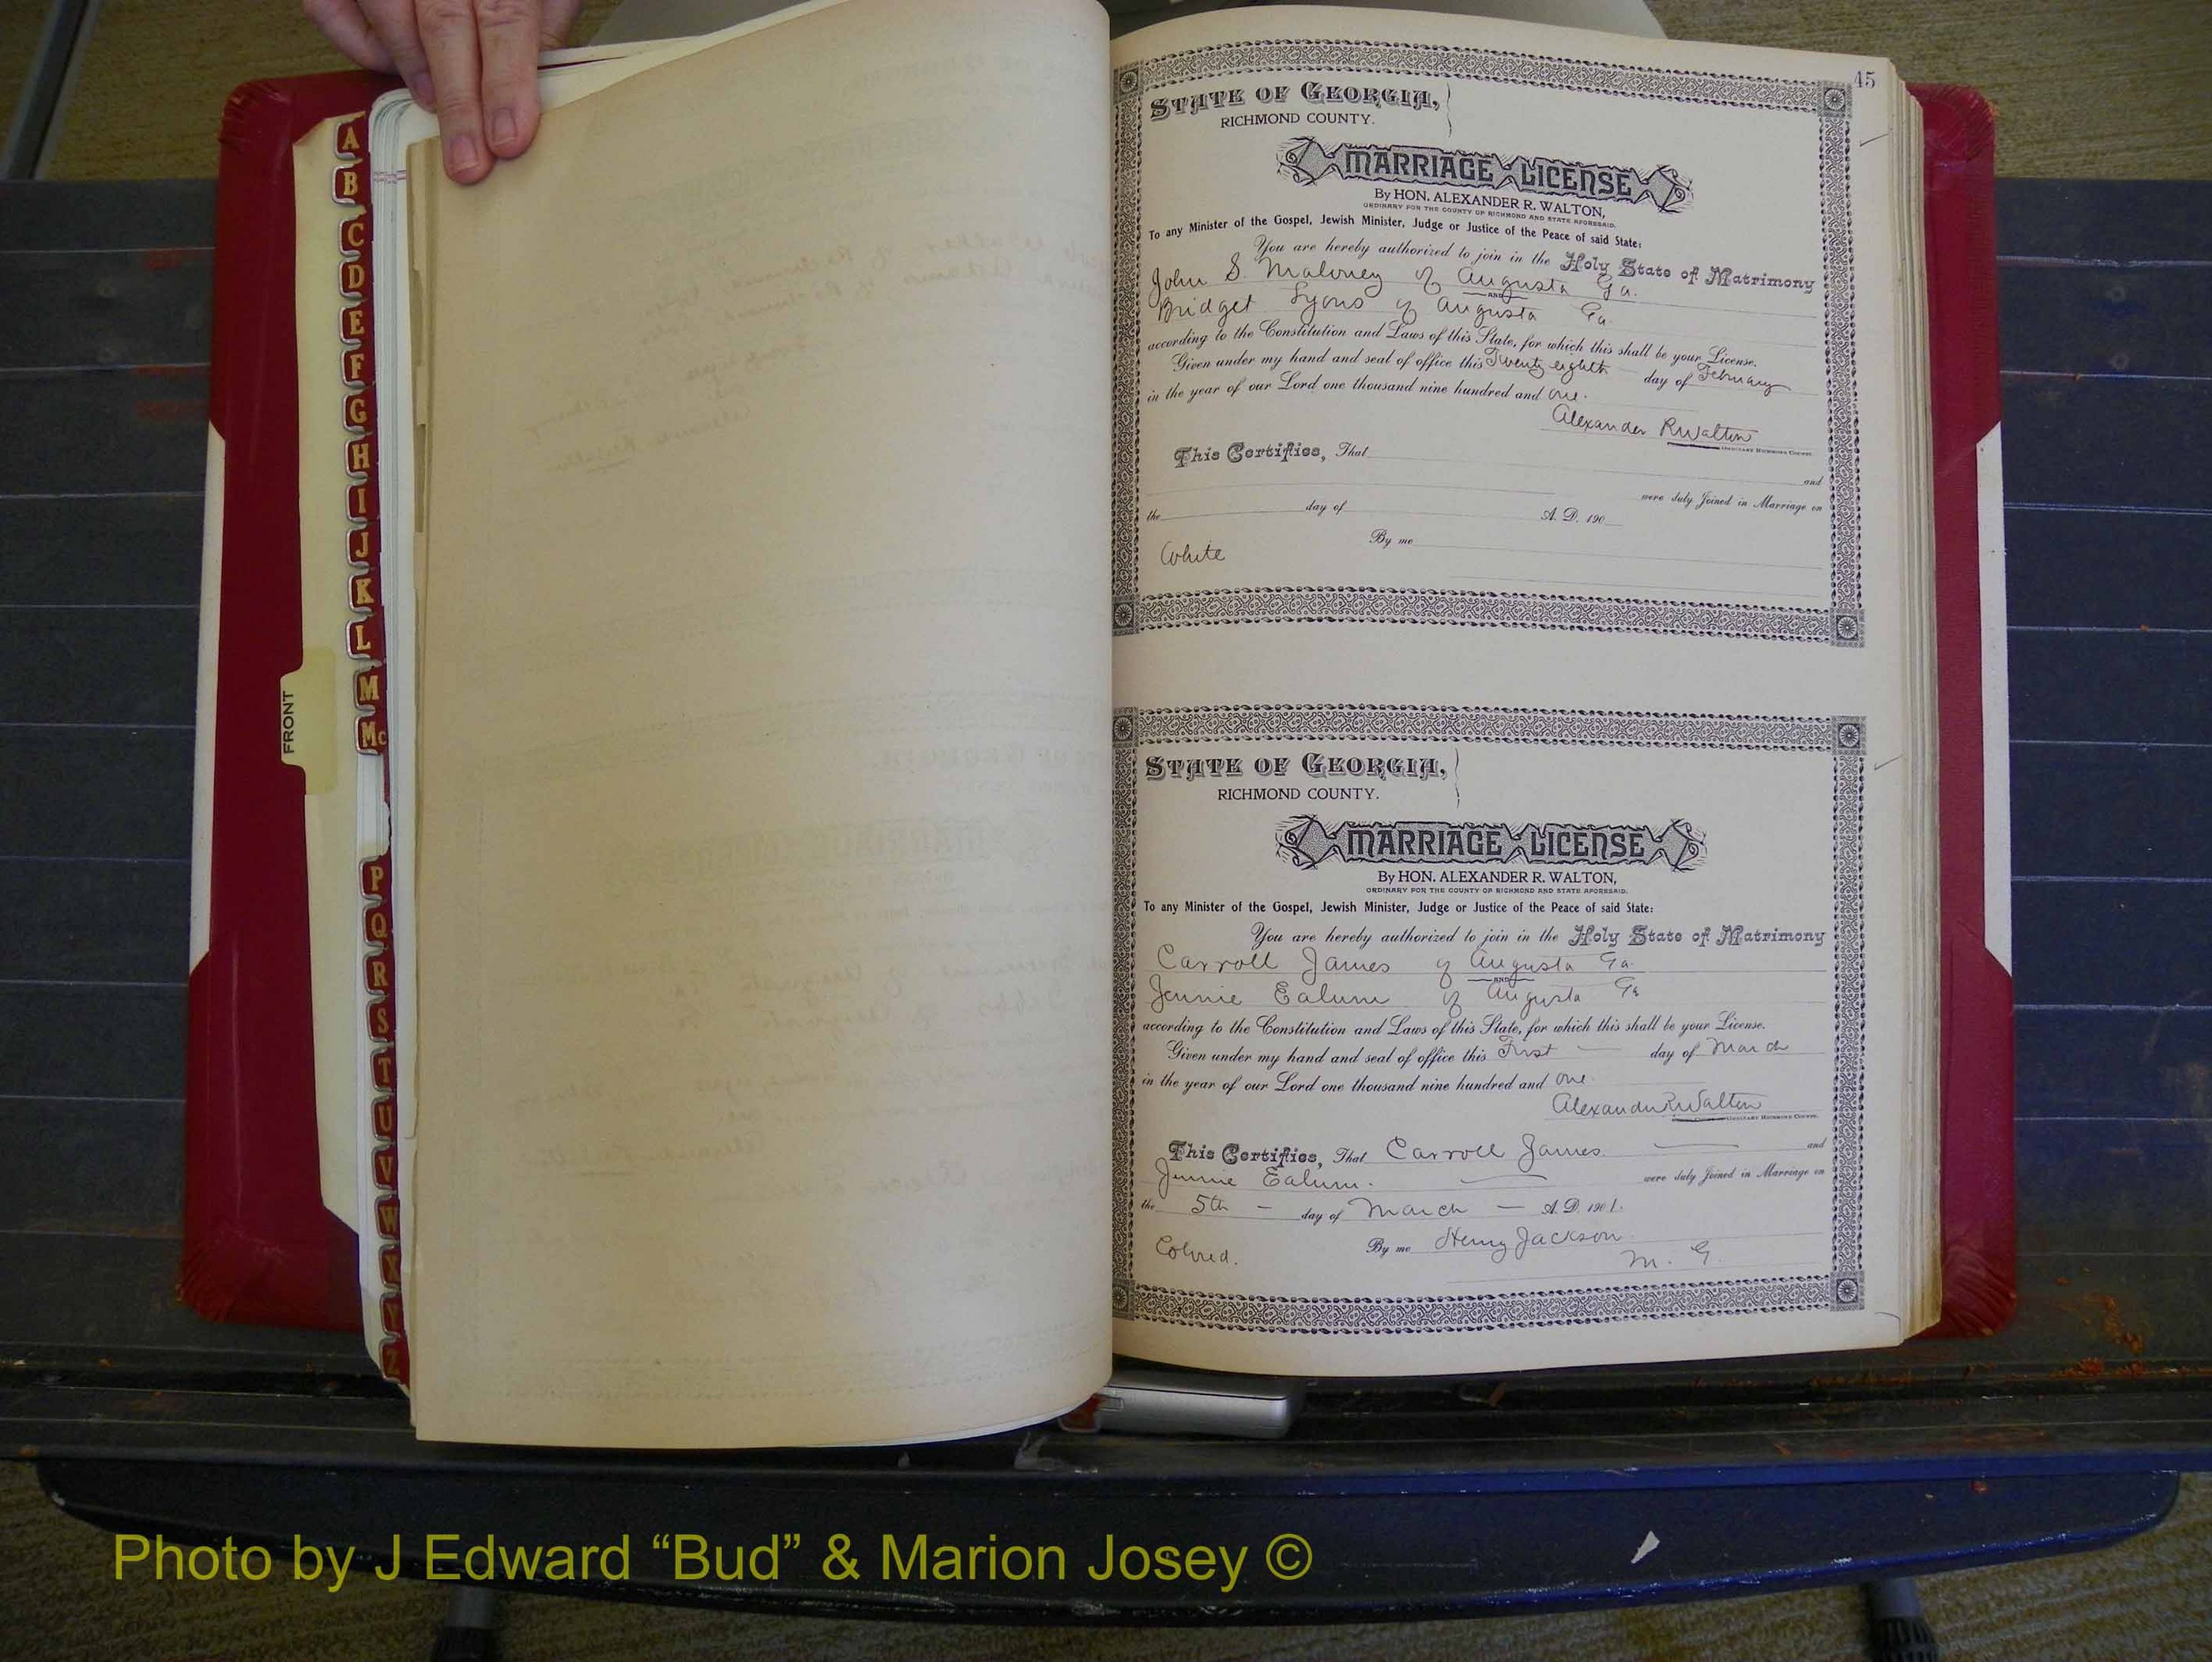 A
B
C
D
E
F
G
H
I
J
K
L
M
Mc
P
Q
R
S
T
U
V
W
X
Y
Z
FRONT
45
STATE OF GEORGIA,
RICHMOND COUNTY.
MARRIAGE LICENSE
By HON. ALEXANDER R. WALTON,
ORDINARY FOR THE COUNTY OF RICHMOND AND STATE AFORESAID.
To any Minister of the Gospel, Jewish Minister, Judge or Justice of the Peace of said State:
You are hereby authorized to join in the Holy State of Matrimony
John S. Maloney of Augusta Ga.
AND
Bridget Lyons of Augusta Ga.
according to the Constitution and Laws of this State, for which this shall be your License.
Given under my hand and seal of office this Twenty eighth day of February
in the year of our Lord one thousand nine hundred and one.
Alexander R Walton
ORDINARY RICHMOND COUNTY.
This Certifies, That
and
were duly Joined in Marriage on
the day of A. D. 190
By me
White
STATE OF GEORGIA,
RICHMOND COUNTY.
MARRIAGE LICENSE
By HON. ALEXANDER R. WALTON,
ORDINARY FOR THE COUNTY OF RICHMOND AND STATE AFORESAID.
To any Minister of the Gospel, Jewish Minister, Judge or Justice of the Peace of said State:
You are hereby authorized to join in the Holy State of Matrimony
Carroll James of Augusta Ga.
AND
Jennie Ealum of Augusta Ga
according to the Constitution and Laws of this State, for which this shall be your License.
Given under my hand and seal of office this First day of March
in the year of our Lord one thousand nine hundred and one.
Alexander R Walton
ORDINARY RICHMOND COUNTY.
This Certifies, That Carroll James and
Jennie Ealum. were duly Joined in Marriage on
the 5th day of March A. D. 1901.
By me Henry Jackson
Colored. M. G.
Photo by J Edward “Bud” & Marion Josey ©